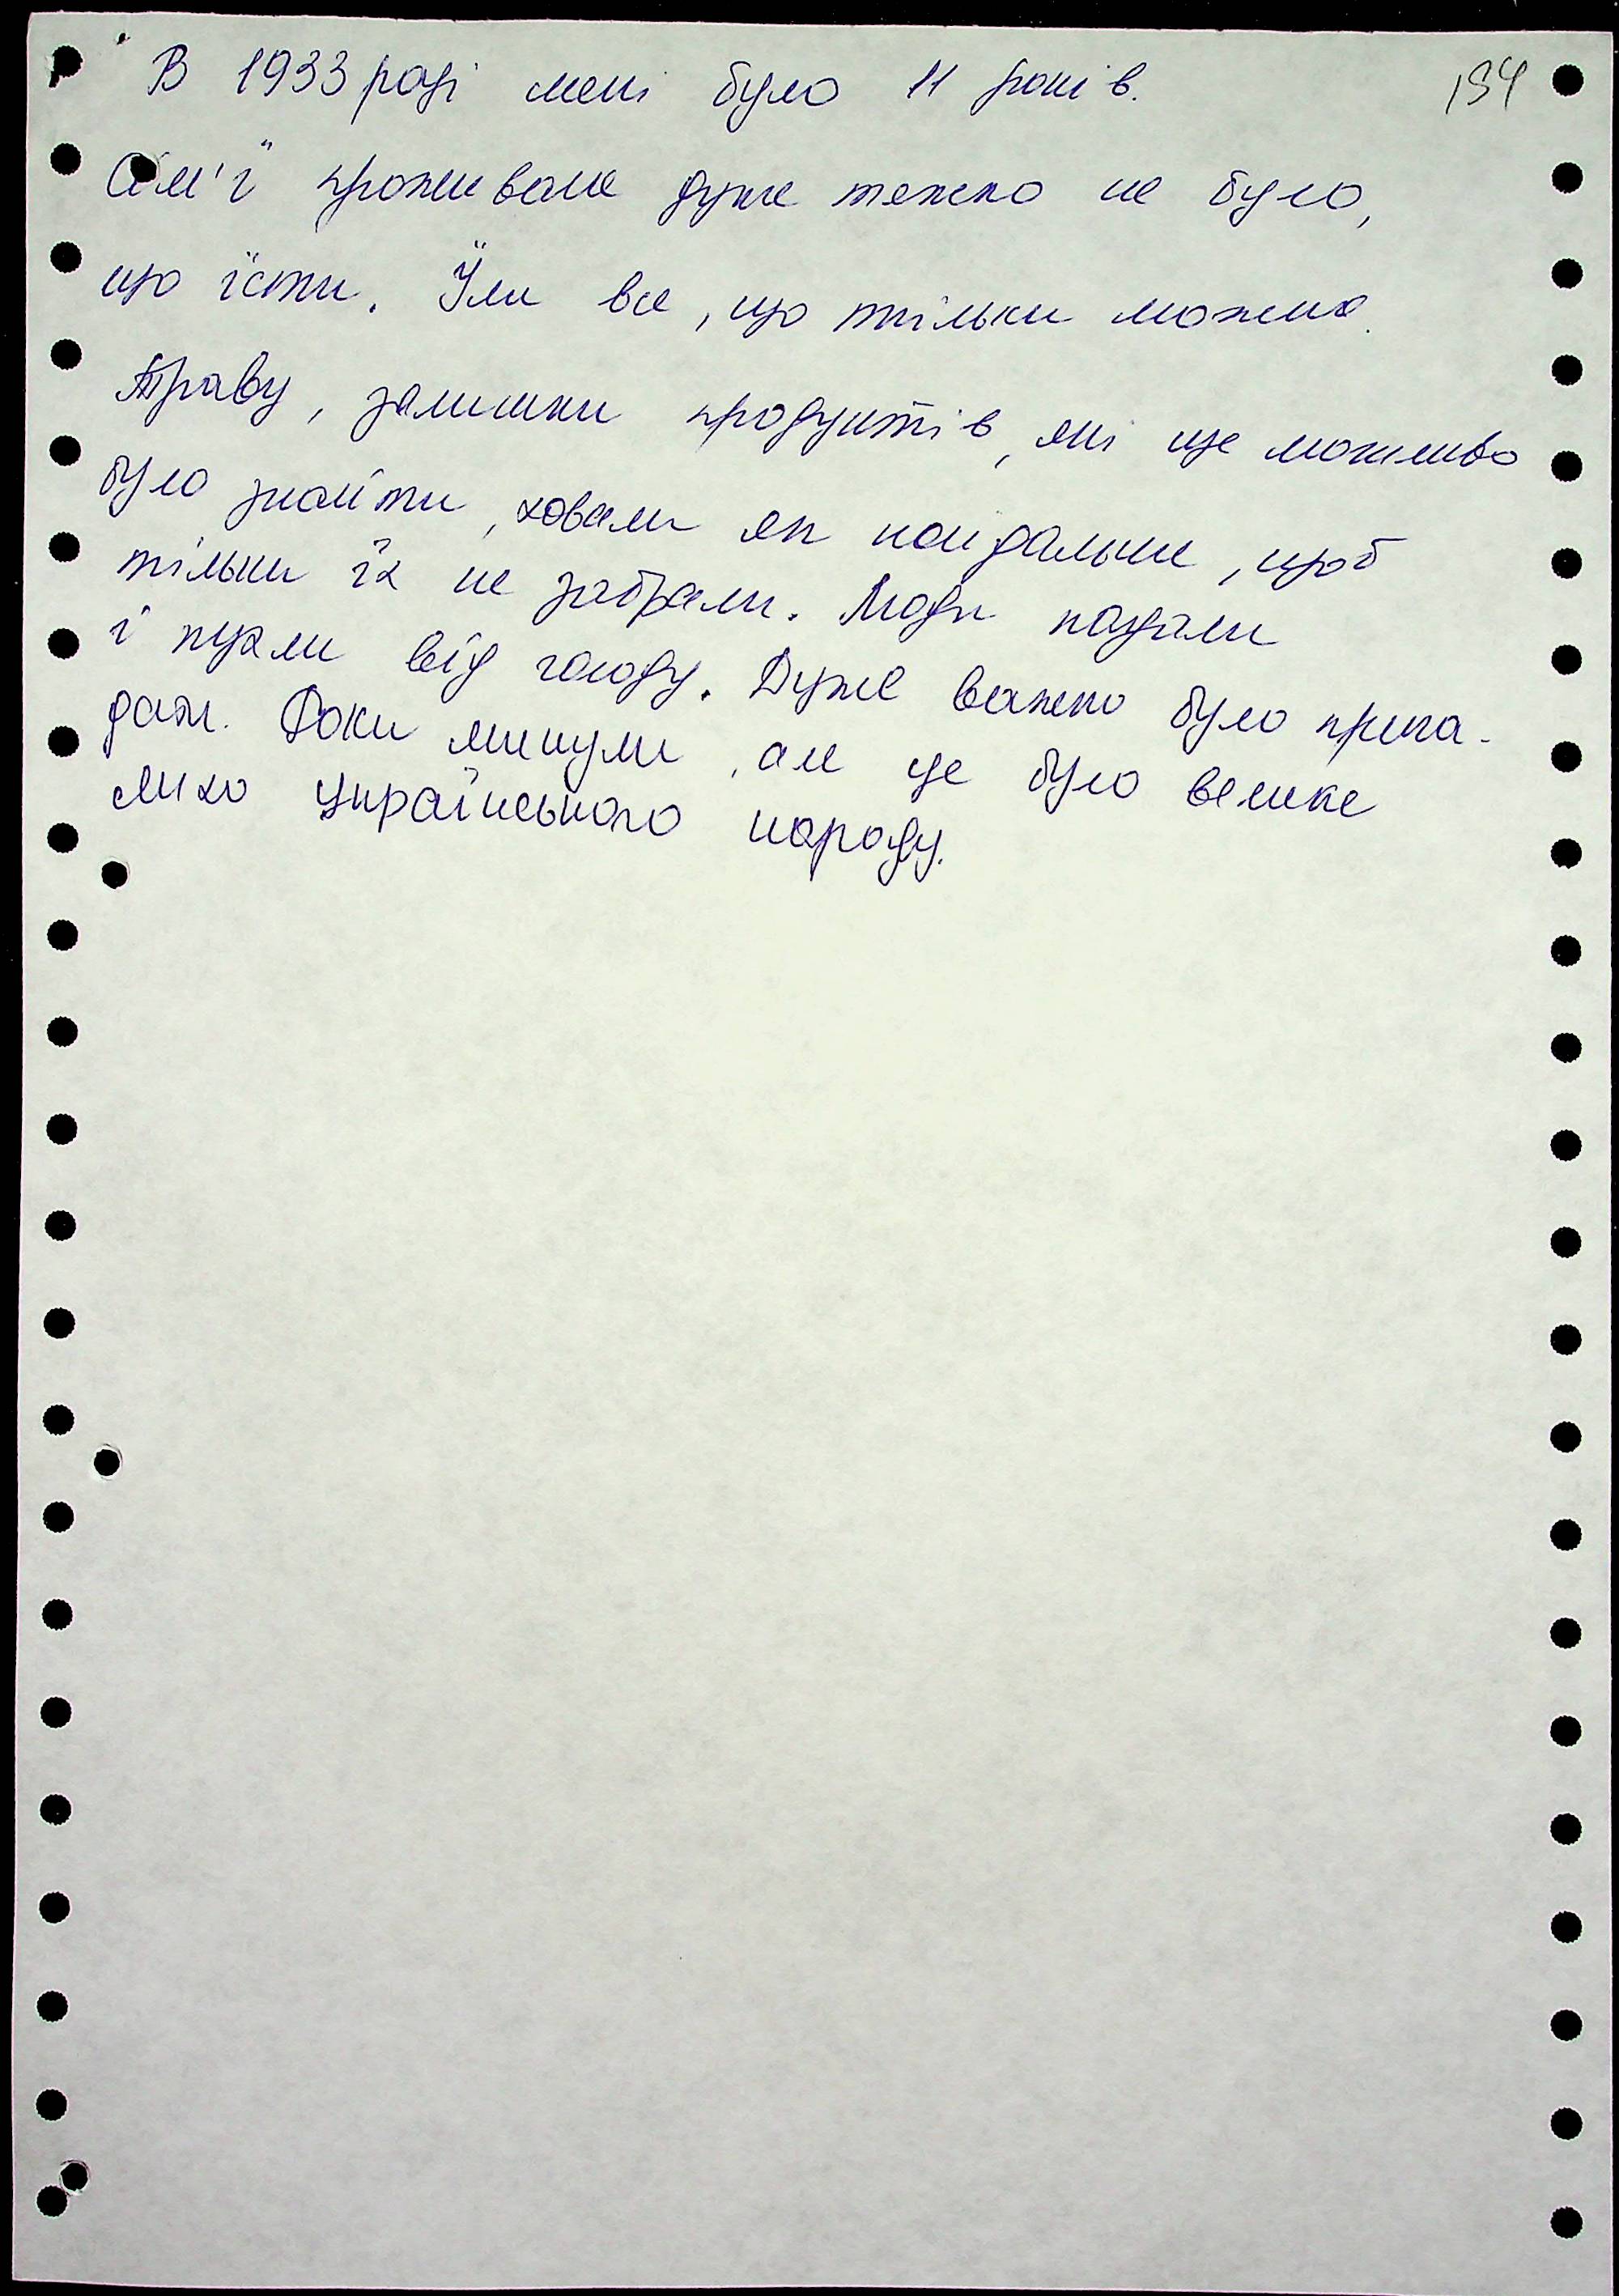 194
В 1933 році мені було 11 років.
Сім'ї проживала дуже тяжко не було,
що їсти. Їли все, що тільки можна.
Траву, залишки продуктів, які ще можливо
було знайти, ховали як найдальше, щоб
тільки їх не забрали. Люди падали
і пухли від голоду. Дуже важно було прига-
дати. Роки минули, але це було велике
лихо українського народу.